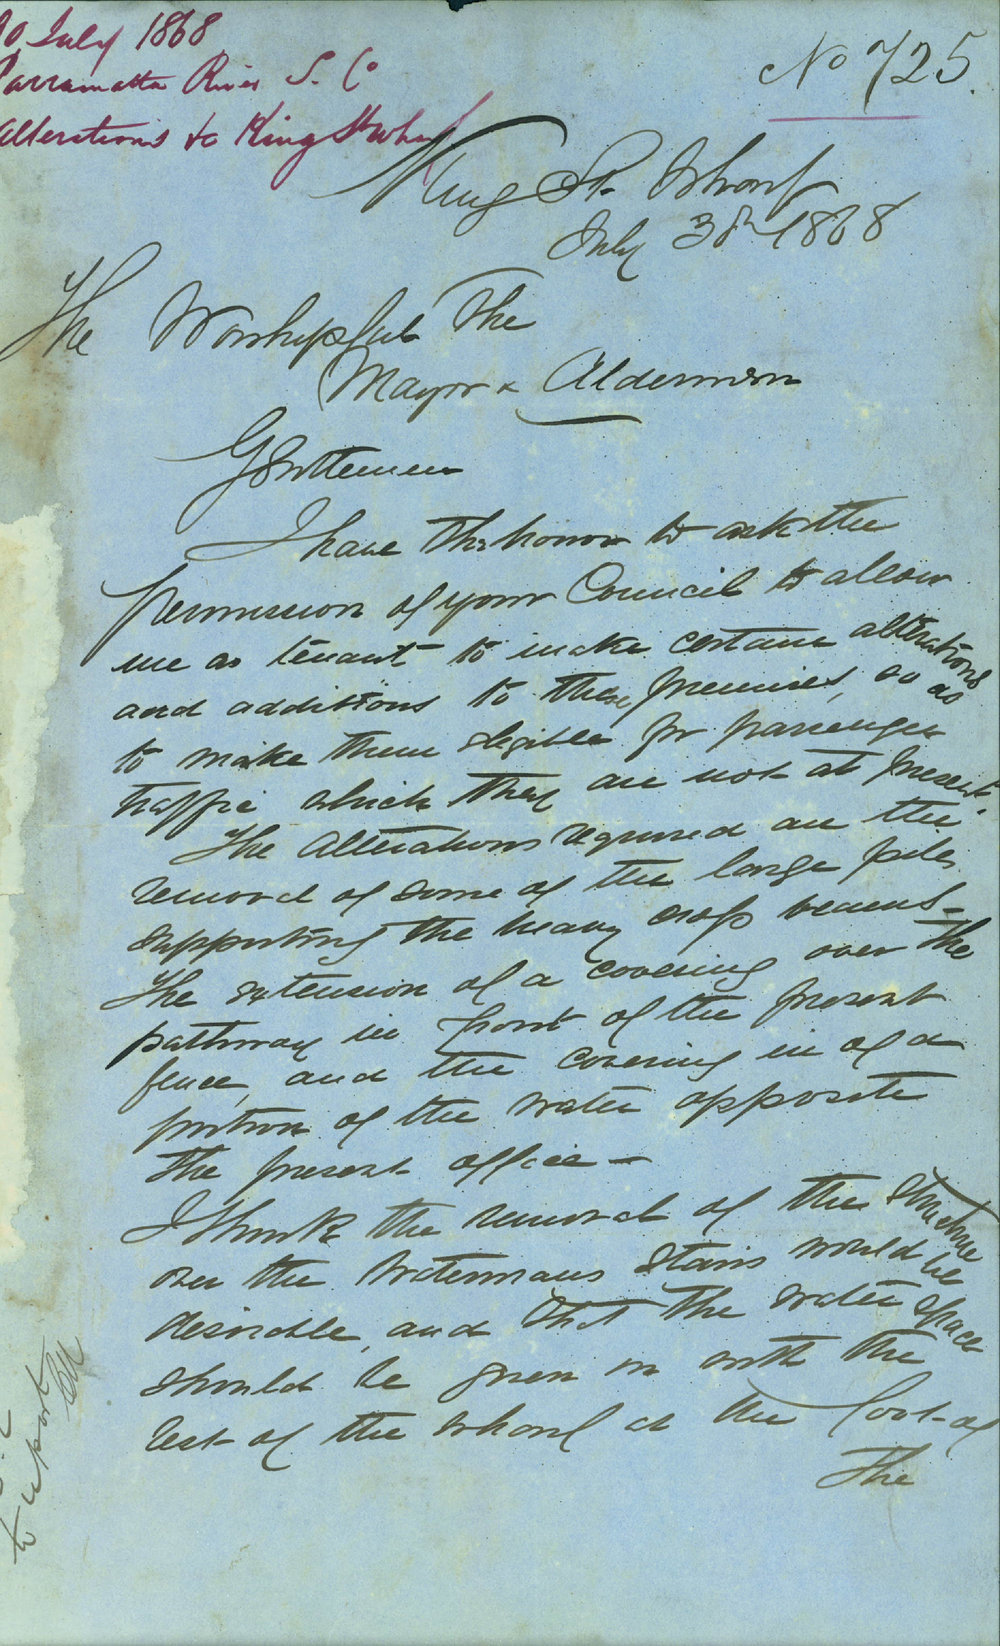 30 July 1868
Parramatta River S. Co
Alterations to King St Wharf
No 725.
King St. Wharf
July 30th 1868
The Worshipful The
Mayor & Aldermen
Gentlemen
I have the honor to ask the
permission of your Council to allow
me as tenant to make certain alterations
and additions to these premises, so as
to make them eligible for passenger
traffic which they are not at present.
The Alterations required are the
removal of some of the large piles
supporting the heavy cross beams -
The extension of a covering over the
pathway in front of the present
fence, and the covering in of a
portion of the water opposite
the present office -
I think the removal of the structure
over the Watermans Stairs would be
desirable, and that the water space
should be given in with the
rest of the wharf at the foot of
The
to report